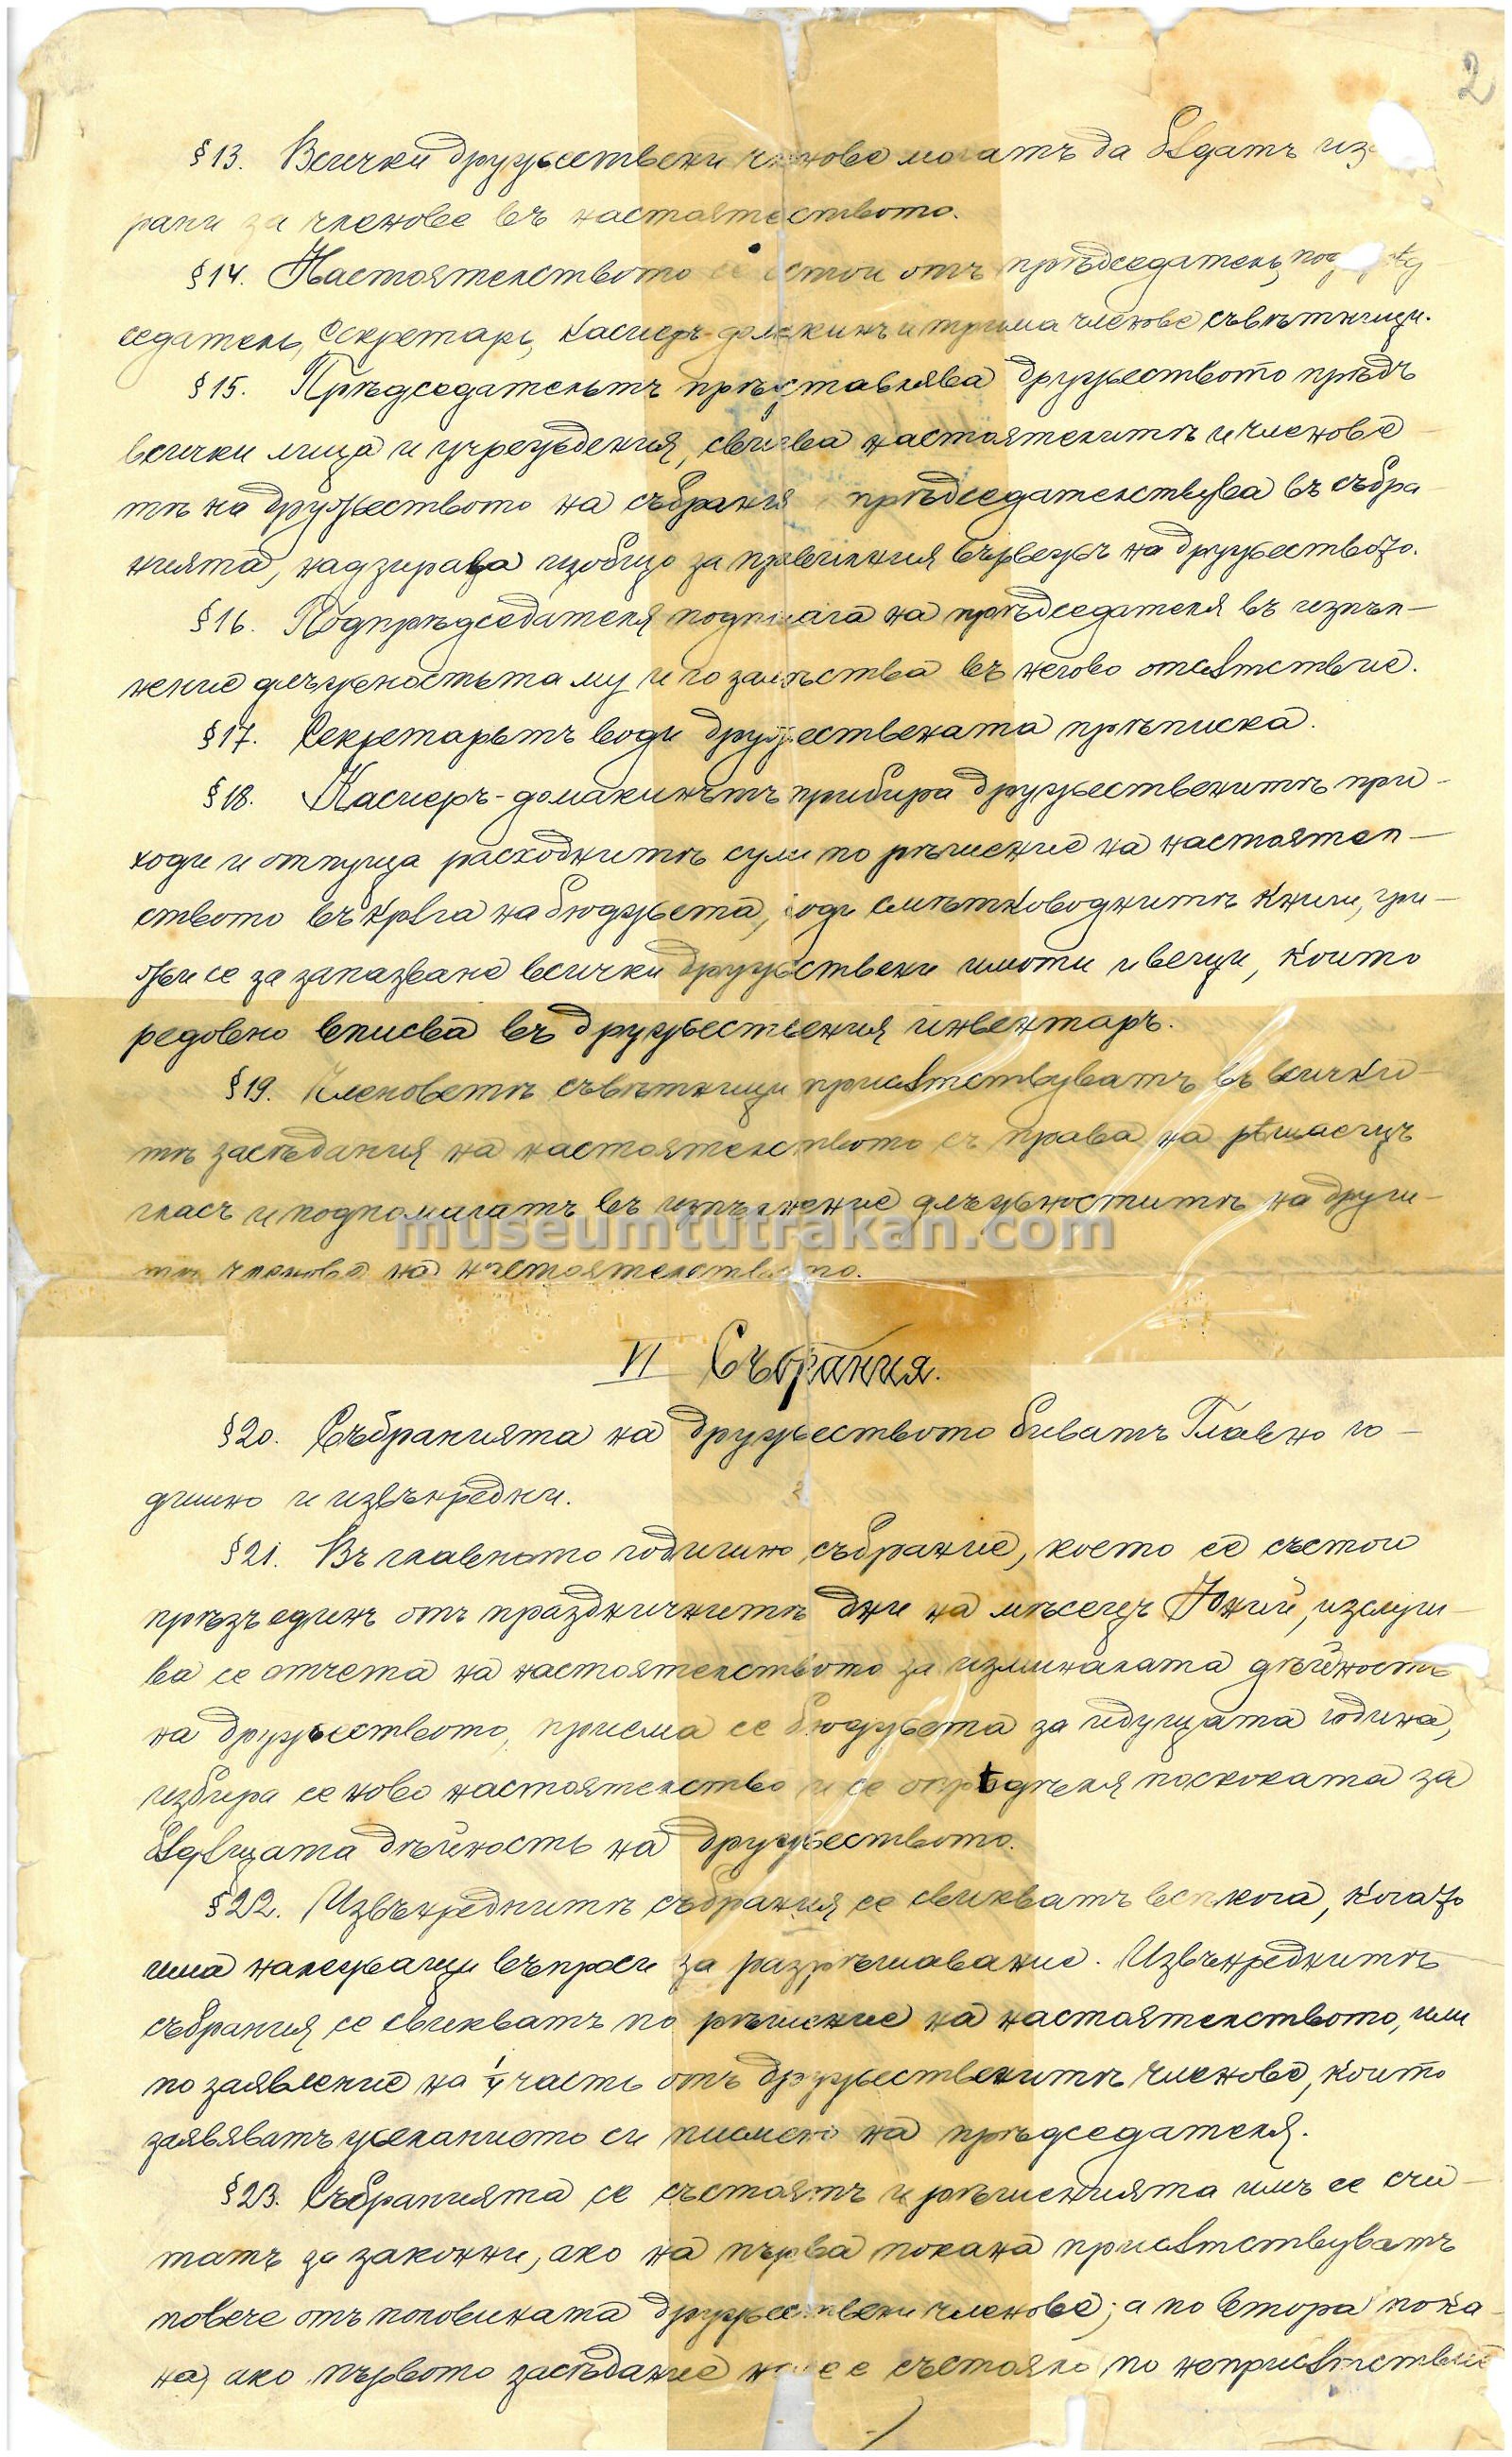 2
§ 13. Всички дружествени членове могатъ да бѫдатъ из
рани за членове въ настоятелството.
§ 14. Настоятелството се състои отъ прѣдседатель, подпрѣд
седатель, секретарь, касиеръ-домакинъ и трима членове съвѣтници.
§ 15. Прѣдседательтъ прѣдставлява дружеството прѣдъ
всички лица и учреждения, свиква настоятелитѣ и членове
тѣ на дружеството на събрания, прѣдседателствува въ събра
нията, надзирава изобщо за правилния вървежъ на дружеството.
§ 16. Подпрѣдседателя подпомага на прѣдседателя въ изпъл-
нение длъжностьта му и го замѣства въ негово отсѫтствие.
§ 17. Секретарьтъ води дружествената прѣписка.
§ 18. Касиеръ-домакинътъ прибира дружественитѣ при-
ходи и отпуща расходнитѣ суми по рѣшение на настоятел-
ството въ крѫга на бюджета, води смѣтководнитѣ книги, гри-
жи се за запазване всички дружествени имоти и вещи, които
редовно вписва въ дружествения инвентаръ.
§ 19. Членоветѣ съвѣтници присѫтствуватъ въ всички-
тѣ заседания на настоятелството съ права на рѣшающъ
гласъ и подпомагатъ въ изпълнение длъжноститѣ на други-
тѣ членове на настоятелството.
museumtutrakan.com
VI Събрания.
§ 20. Събранията на дружеството биватъ Главно го-
дишно и извънредни.
§ 21. Въ главното годишно събрание, което се състои
прѣзъ единъ отъ празничнитѣ дни на мѣсецъ Юний, изслуш-
ва се отчета на настоятелството за изминалата дѣйность
на дружеството, приема се бюджета за идущата година,
избира се ново настоятелство и се опрѣдѣля посоката за
бѫдѫщата дѣйность на дружеството.
§ 22. Извънреднитѣ събрания се свикватъ всѣкога, когато
има належащи въпроси за разрѣшавание. Извънреднитѣ
събрания се свикватъ по рѣшение на настоятелството, или
по заявление на 1/4 часть отъ дружественитѣ членове, които
заявяватъ желанието си писмено на прѣдседателя.
§ 23. Събранията се състоятъ и рѣшенията имъ се счи-
татъ за законни, ако на първа покана присѫтствуватъ
повече отъ половината дружествени членове; а по втора пока
на, ако първото заседание не се състояло по неприсѫтствие